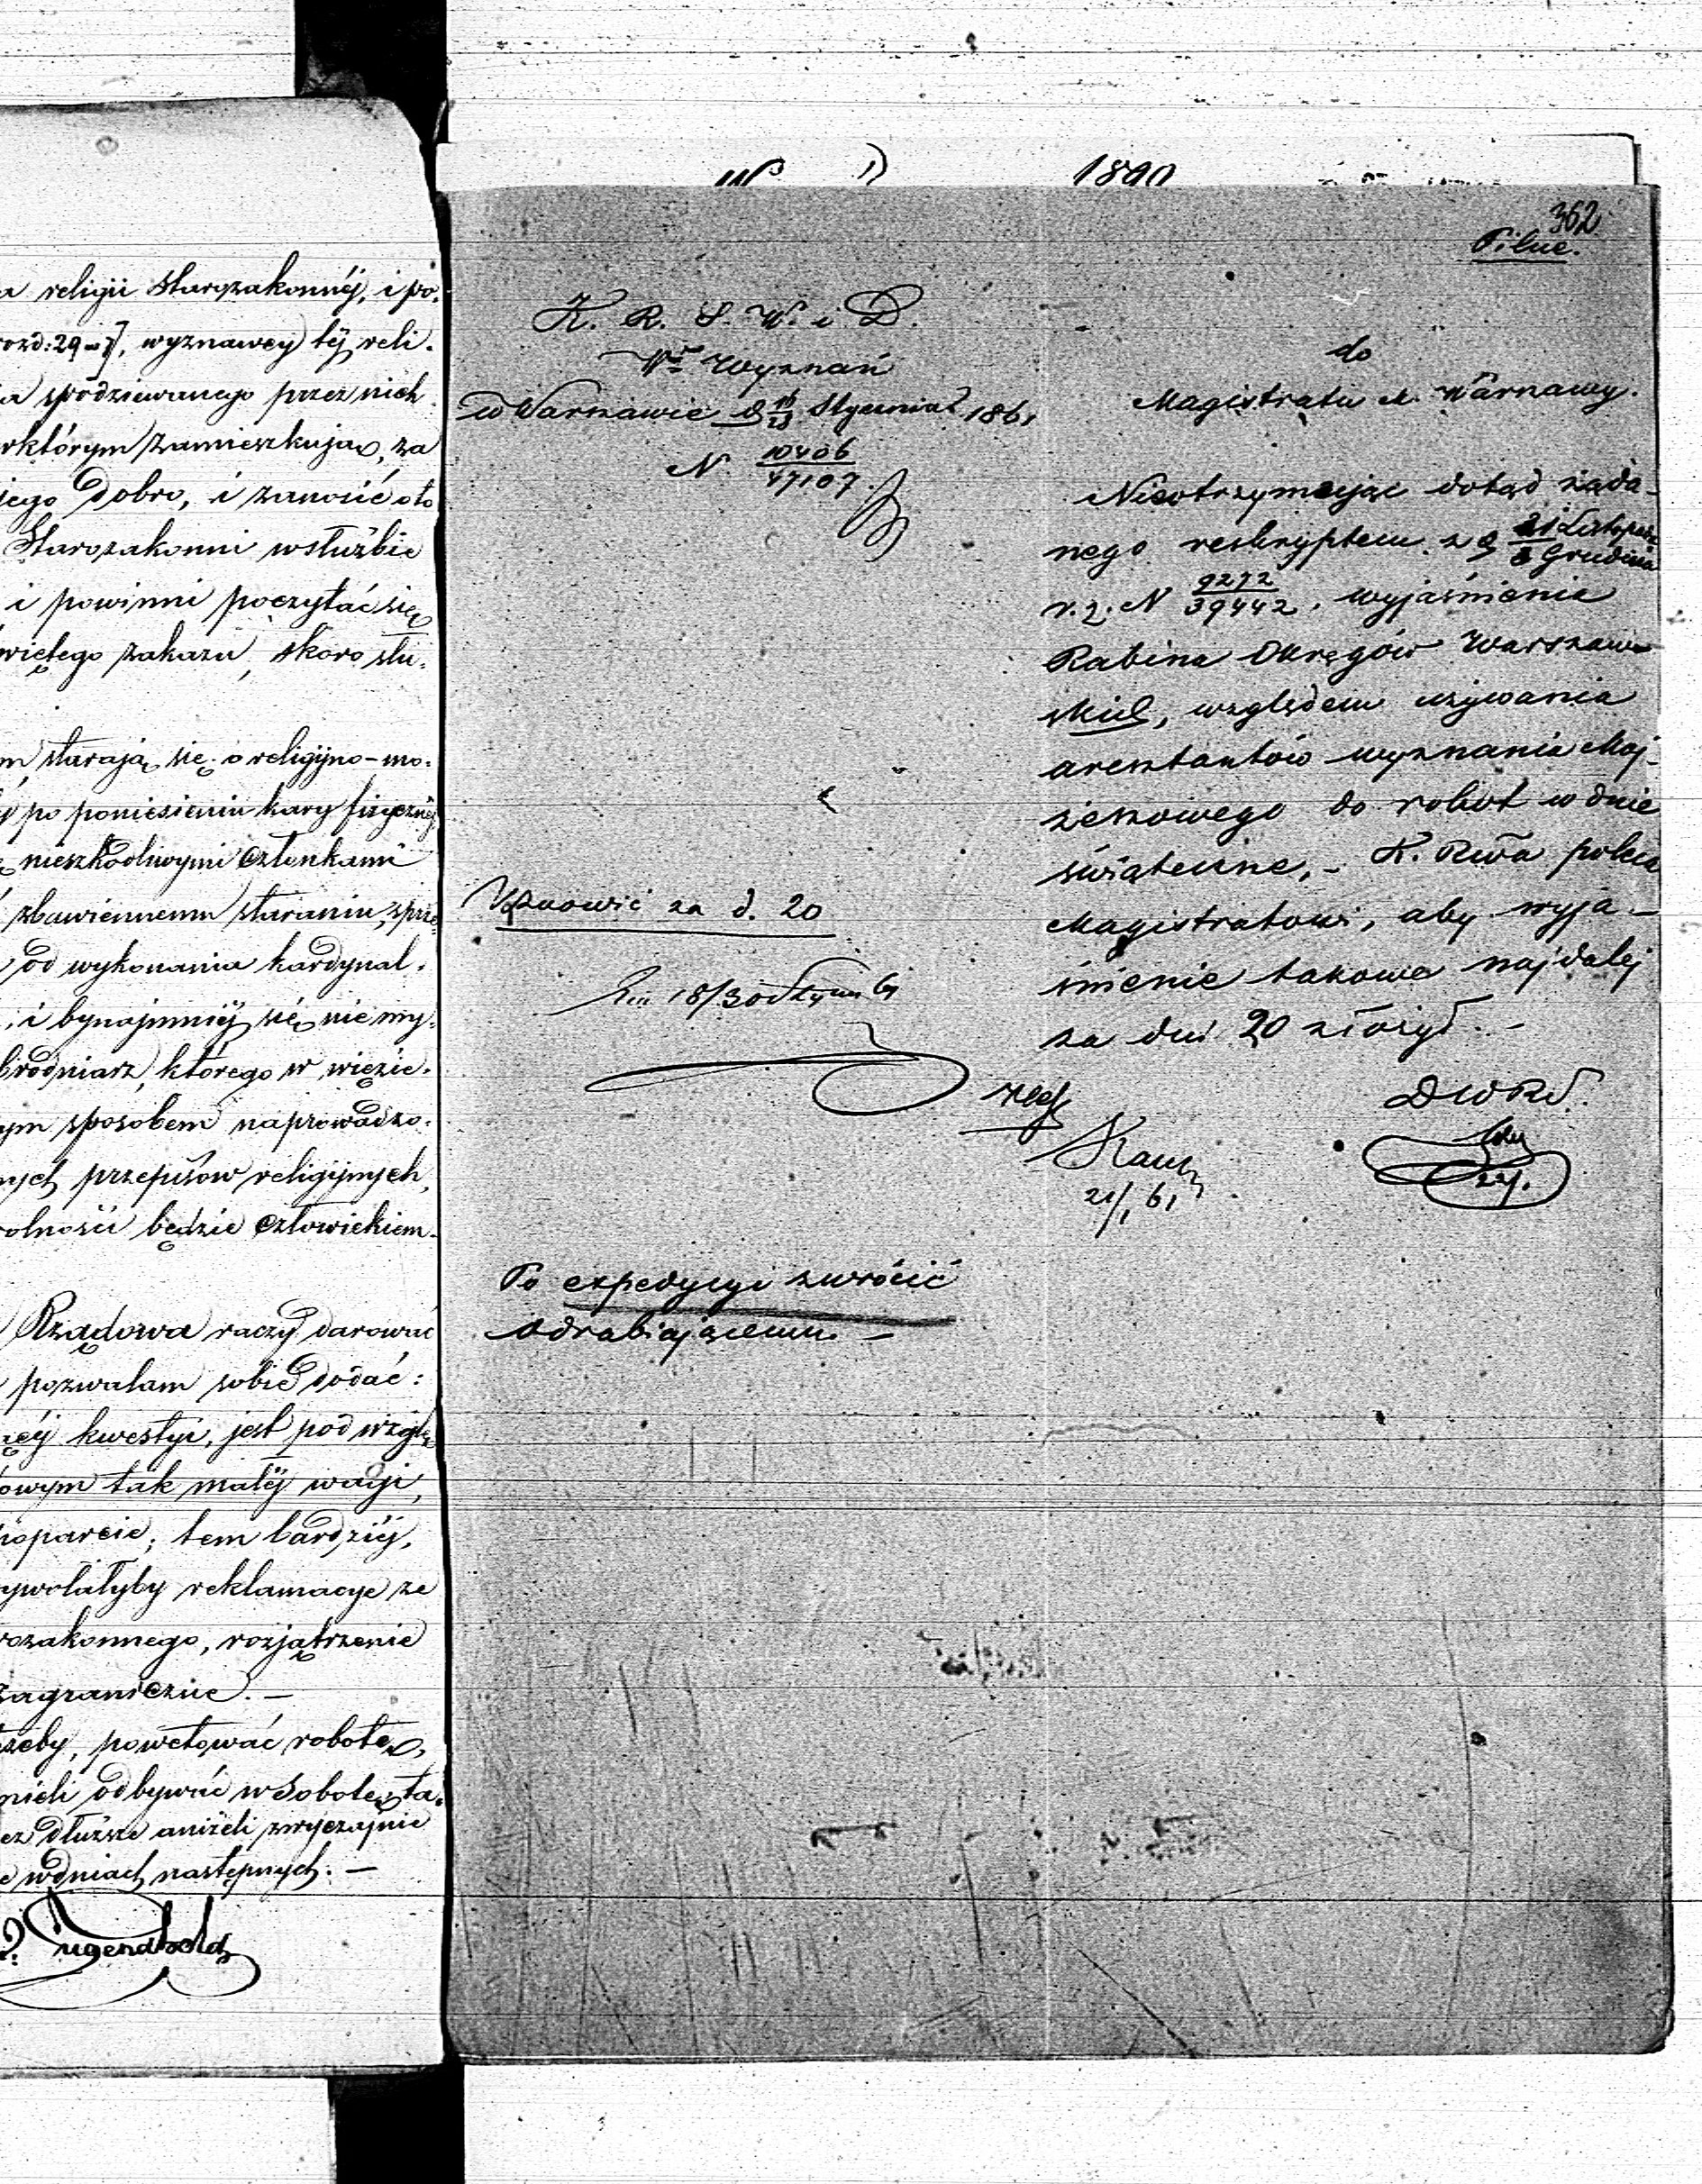 a religii starozakonnéj, i po-
rozd: 29-7], wyznawcy téj reli-
a spodziewanego przez nich
w którym zamieszkują, za
jego dobro, i zanosić oto
Starozakonni w służbie
i powinni poczytać się
więtego zakazu, skoro słu-
m starają się o religijno-mo-
po poniesieniu kary fizycznéj
nieszkodliwymi członkami
zbawiennemu staraniu, sprze
od wykonania kardynal-
, i bynajmniéj się nie my-
brodniarz, którego w więzie-
ym sposobem naprowadzo-
nych przepisów religijnych,
olności będzie człowiekiem-
Rządowa raczy darować
pozwalam sobie dodać:
zéj kwestyi, jest pod wzglę
owym tak małéj wagi,
poparcie; tem bardziéj,
ywołałyby reklamacye ze
rozakonnego, rozjątrzenie
zagranicznie. -
zeby, powetować robotę,
mieli odbywać w Sobotę, ta-
ez dłuższe aniżeli zwyczajnie
w dniach następnych. -
Tugendhold
1890
362
Pilne.
K. R. S. W. i D.
Wł Wyznań
w Warszawie d Stycznia 1861
N 10406/47107.
do
Magistratu M. Warszawy.
Nieotrzymując dotąd żąda-
nego reskryptem z d 21 Listopada/3 Grudnia
r.z. N 9272/39442, wyjaśnienia
Rabina Okręgów Warszaw-
skich, względem używania
aresztantów wyznania Moj-
żeszowego do robot w dnie
świąteczne, - K. Rwa poleca
Magistratowi, aby wyja-
śnienie takowe najdaléj
za dni 20 złożył. -
Wznowić za d. 20
18/30 Styczn 61
DWRd.
21/1 61
Po expedycyi zwrócić
odrabiającemu. -